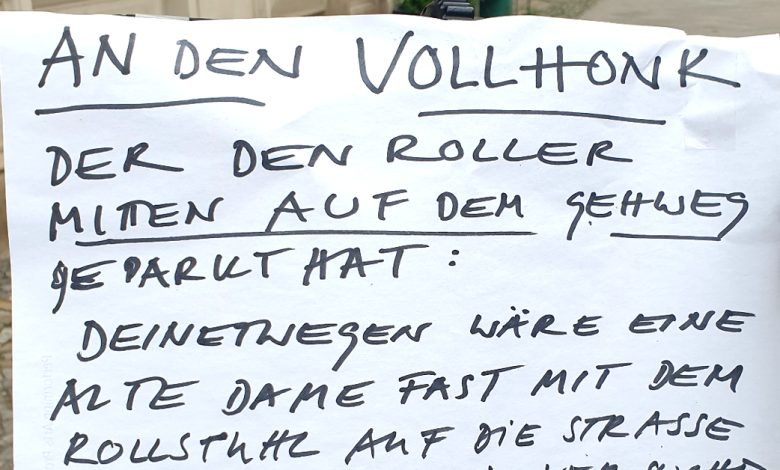 AN DEN VOLLHONK
DER DEN ROLLER
MITTEN AUF DEM GEHWEG
GEPARKT HAT :
DEINETWEGEN WÄRE EINE
ALTE DAME FAST MIT DEM
ROLLSTUHL AUF DIE STRASSE